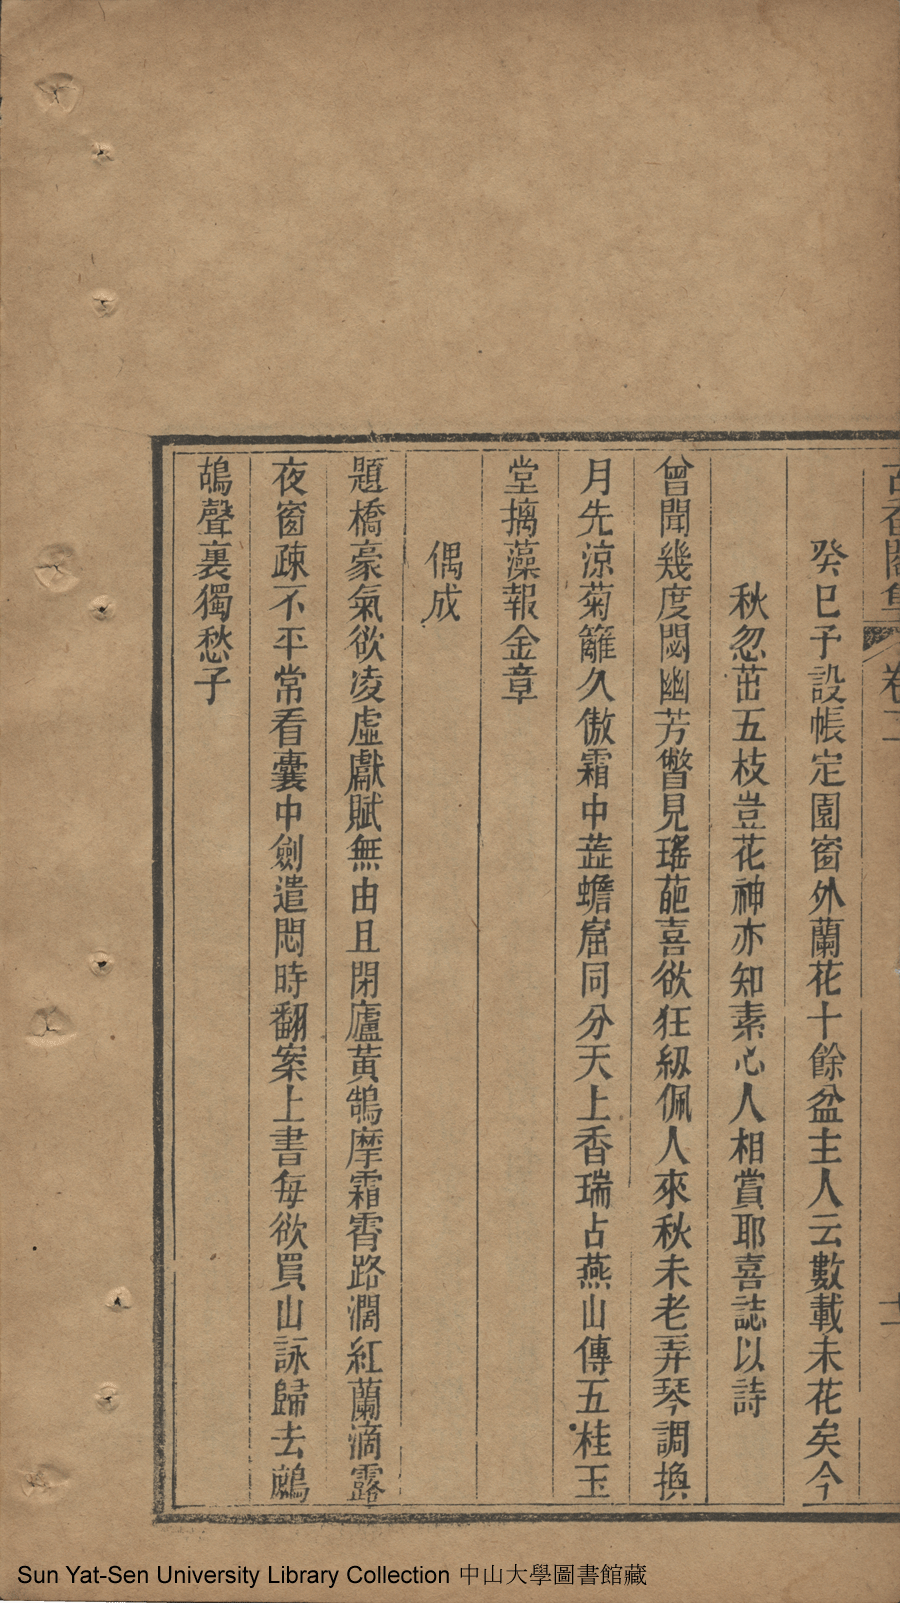 古香閣集 卷二 十一
癸巳予設帳定園窗外蘭花十餘盆主人云數載未花矣今
秋忽茁五枝豈花神亦知素心人相賞耶喜誌以詩
曾聞幾度閟幽芳瞥見瑤葩喜欲狂紉佩人來秋未老弄琴調換
月先涼菊籬久傲霜中蕋蟾窟同分天上香瑞占燕山傳五桂玉
堂摛藻報金章
偶成
題橋豪氣欲凌虛獻賦無由且閉廬黃鵠摩霜霄路濶紅蘭滴露
夜窗疎不平常看囊中劍遣悶時翻案上書每欲買山詠歸去鷓
鴣聲裏獨愁予
Sun Yat-Sen University Library Collection 中山大學圖書館藏